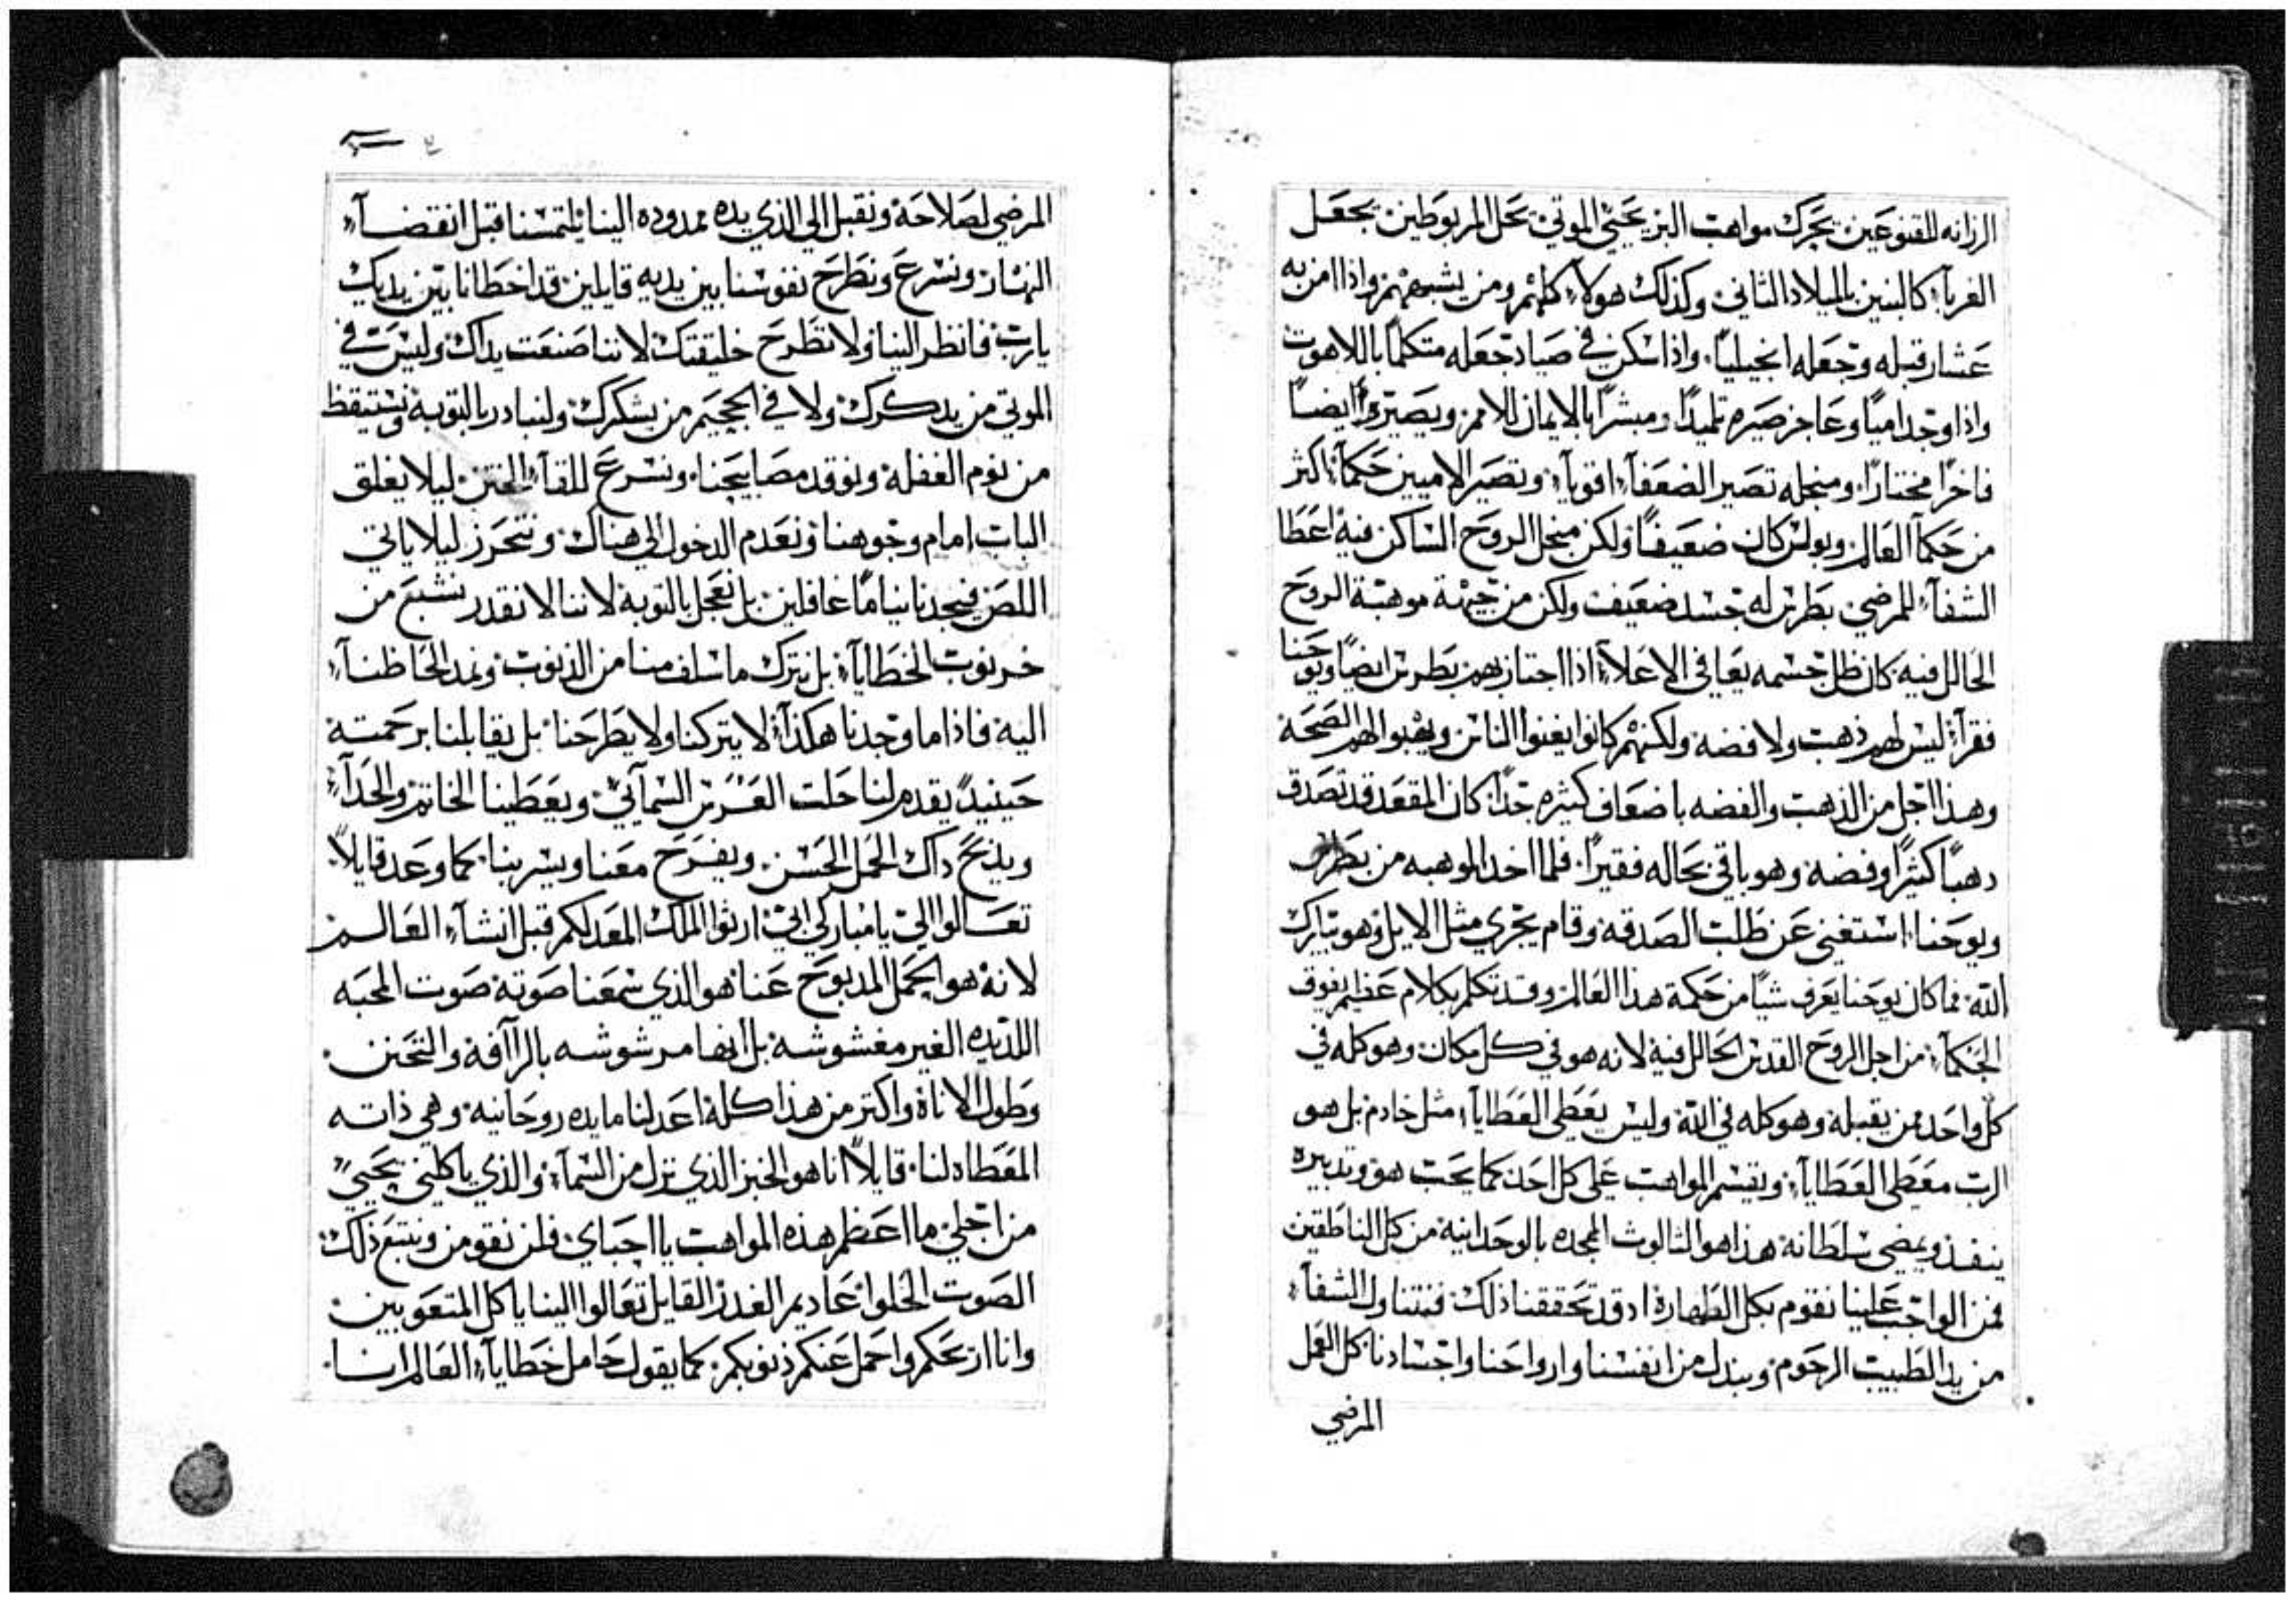 الرزانه للقنوعين تحرك مواهب البر تحيي الموتي تحل المربوطين تجعل
الغربآء كالبنين بالميلاد الثاني وكذلك هولآء كلهم ومن يشبههم واذا امن به
عشار قبله وجعله انجيلياً واذا سكن في صياد جعله متكلماً باللاهوت
واذا وجد امياً وعاجز صيره تلميداً ومبشراً بالايمان للامم ويصير ايضاً
فاخراً مختاراً ومنجله تصير الضعفآء اقويآء وتصير الاميين حكمآء اكثر
من حكمآ العالم وبولس كان ضعيفاً ولكن منجل الروح الساكن فيه اعطا
الشفآء للمرضي بطرس له جسد ضعيف ولكن من جهة موهبة الروح
الحالل فيه كان ظل جسمه يعافي الاعلآء اذا اجتاز بهم بطرس ايضاً ويوحنا
فقرآء ليس لهم ذهب ولا فضه ولكنهم كانوا يغنوا الناس ويهبوا لهم الصحة
وهذا اجل من الذهب والفضه باضعاف كثيره جداً كان المقعد قد تصدق
دهباً كثيراً وفضة وهو باقي بحاله فقيراً فلما اخد الموهبه من بطرس
ويوحنا استغني عن طلب الصدقه وقام يجري مثل الايل وهو يبارك
الله فما كان يوحنا يعرف شياً من حكمة هذا العالم وقد تكلم بكلام عظيم يفوق
الحكمآء من اجل الروح القدس الحالل فيه لانه هو في كل مكان وهو كله في
كل واحد ممن يقبله وهو كله في الله وليس يعطي العطايآء مثل خادم بل هو
الرب معطي العطايآء ويقسم المواهب علي كل احد كما يحب هو وتدبيره
ينفذ ويمضي سلطانه هذا هو الثالوث الممجده بالوحدانية من كل الناطقين
فمن الواجب علينا نقوم بكل الطهارة اد قد تحققنا ذلك فنتناول الشفآء
من يد الطبيب الرحوم ونبدل من انفسنا وارواحنا واجسادنا كل العمل
المرضي
المرضي لصلاحة ونقبل الي الذي يده ممدوده الينا يلتمسنا قبل انقضآء
النهار ونسرع ونطرح نفوسنا بين يديه قايلين قد اخطانا بين يديك
يارب فانظر الينا ولا تطرح خليقتك لاننا صنعت يداك وليس في
الموتي من يدكرك ولا في الجحيم من يشكرك ولنبادر بالتوبة ونستيقظ
من نوم الغفلة ونوقد مصابيحنا ونسرع للقآء الختن ليلا يغلق
الباب امام وجوهنا ونعدم الدخول الي هناك ونتحرز ليلا ياتي
اللص فيجدنا نياماً غافلين بل نعجل بالتوبة لاننا لا نقدر نشبع من
خرنوب الخطايآء بل نترك ما سلف منا من الذنوب ونمد الحاظنآء
اليه فاذا ما وجدنا هكذآء لا يتركنا ولا يطرحنا بل يقابلنا برحمته
حينيد يقدم لنا حلت العرس السمآئي ويعطينا الخاتم والحدآء
ويذبح داك الحمل الحسن ويفرح معنا ويسر بنا كما وعد قايلاً
تعالوا الي يا مباركي ابي ارثوا الملك المعد لكم قبل انشآء العالم
لانه هو الحمل المدبوح عنا هو الذي سمعنا صوته صوت المحبه
اللديده الغير مغشوشه بل انها مرشوشه بالرآفة والتحنن
وطول الاناة واكتر من هذا كله اعد لنا مايده روحانيه وهي ذاته
المعطاه لنا قايلاً انا هو الخبز الذي نزل من السمآء والذي ياكلني يحيي
من اجلي ما اعظم هذه المواهب يا احباي فلن نقومن ونتبع ذلك
الصوت الحلوا عاديم الغدر القايل تعالوا الينا يا كل المتعوبين
وانا اريحكم واحمل عنكم ذنوبكم كما يقول حامل خطايآء العالم انا